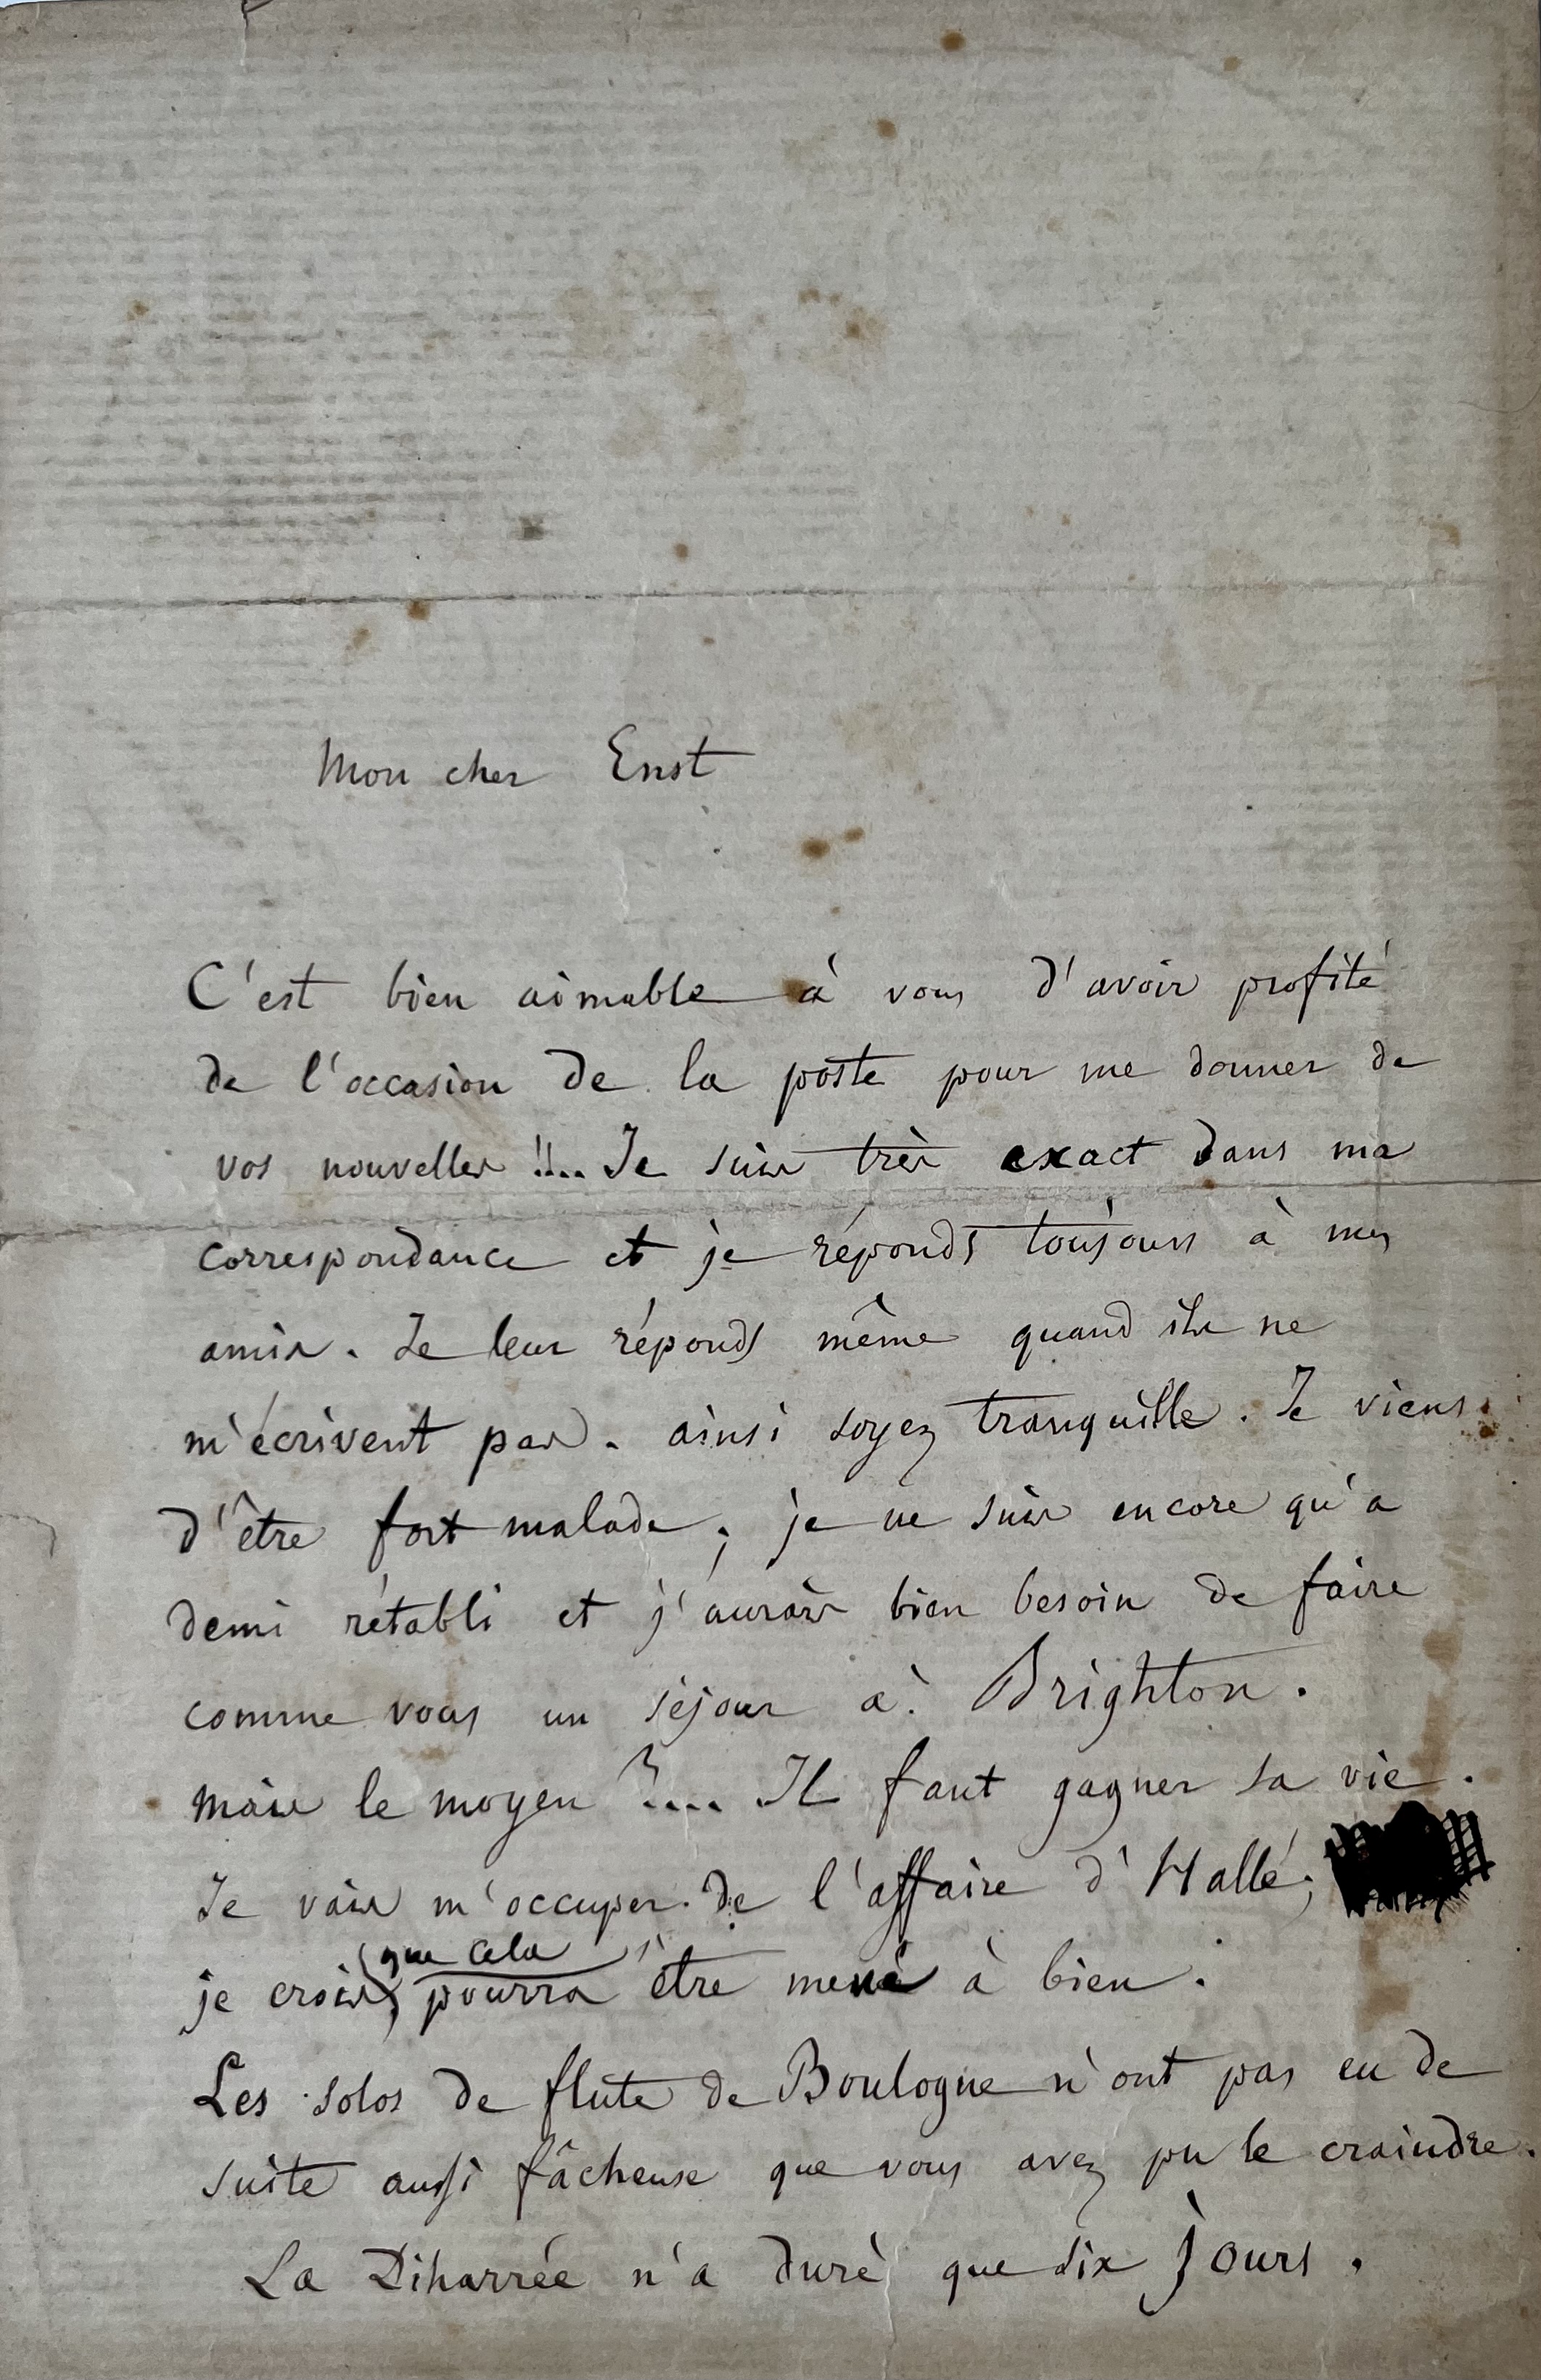 Mon cher Enst
C'est bien aimable à vous d'avoir profité
de l'occasion de la poste pour me donner de
vos nouvelles !!... Je suis très exact dans ma
correspondance et je réponds toujours à mes
amis. Je leur réponds même quand ils ne
m'écrivent pas. ainsi soyez tranquille. Je viens
d'être fort malade; je ne suis encore qu'a
demi rétabli et j'aurais bien besoin de faire
comme vous un séjour à Brighton.
Mais le moyen ?.... Il faut gagner sa vie.
Je vais m'occuper de l'affaire d'Hallé;
que cela
je crois pourra être mené à bien.
Les solos de flute de Boulogne n'ont pas eu de
suite aussi fâcheuse que vous avez pu le craindre.
La Diharrée n'a duré que dix jours.